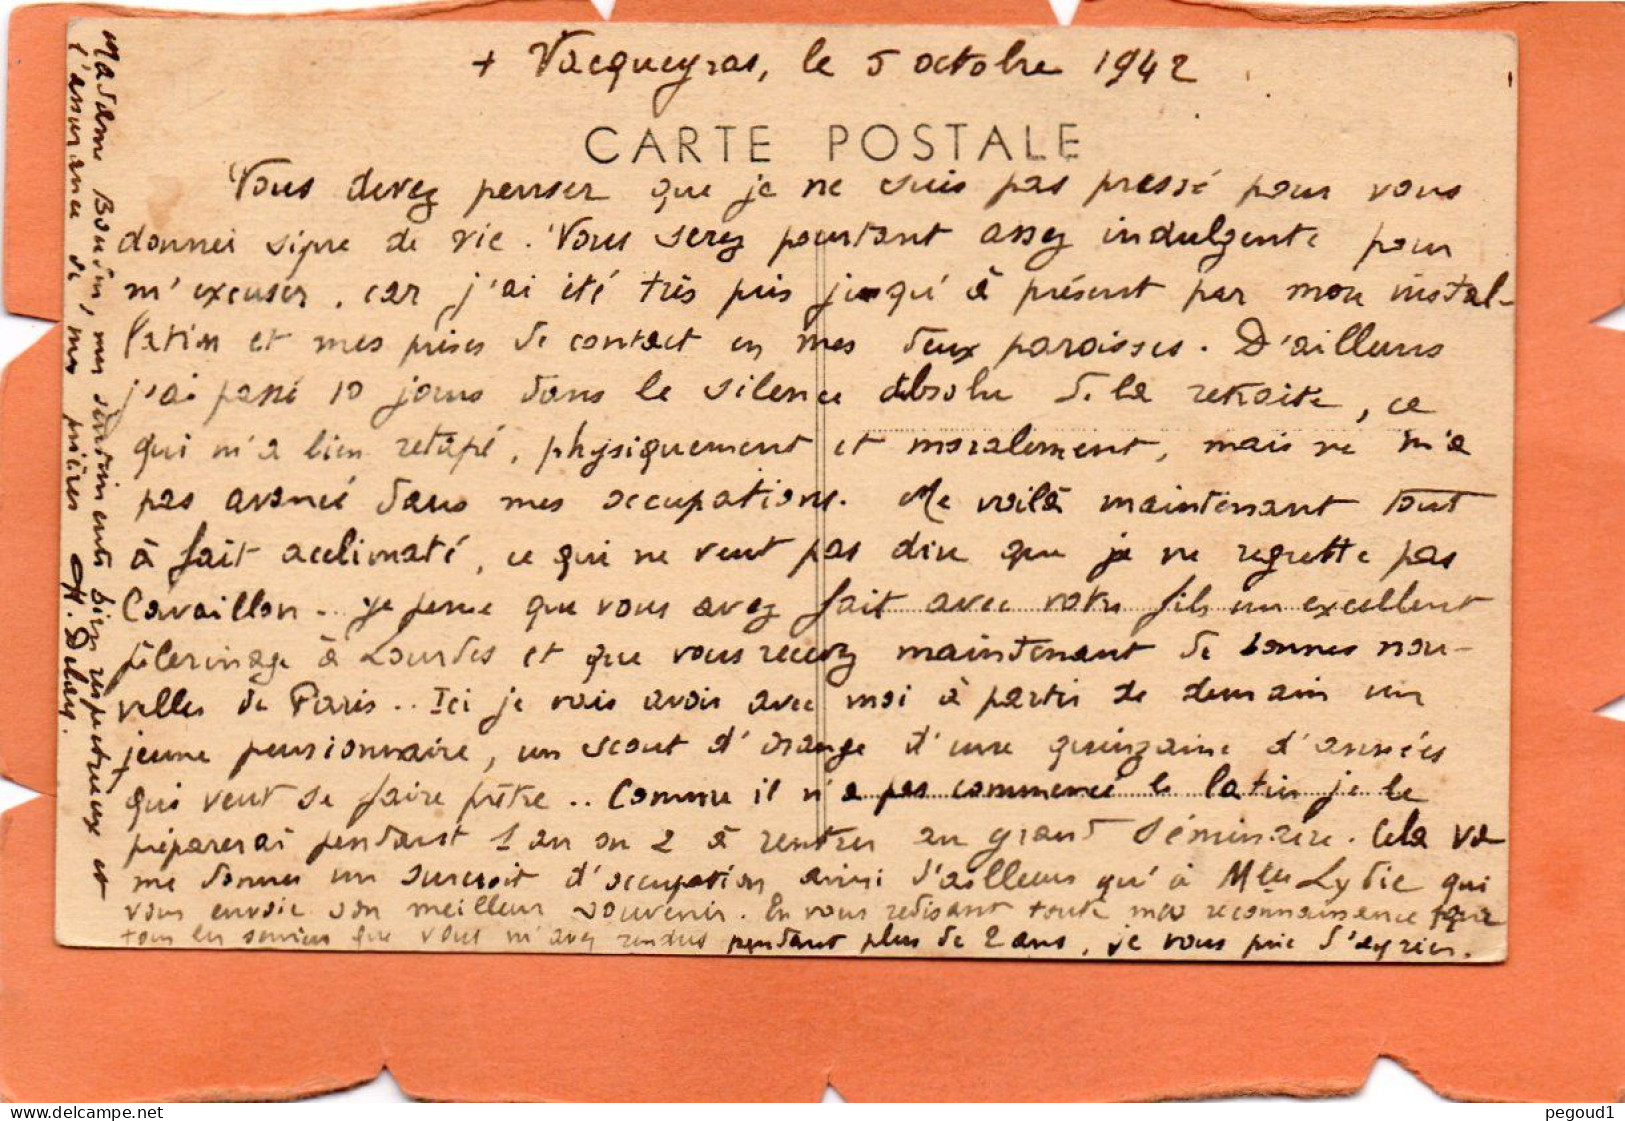 + Vacqueyras, le 5 octobre 1942
CARTE POSTALE
Vous devez penser que je ne suis pas pressé pour vous
donner signe de vie. Vous serez pourtant assez indulgente pour
m'excuser, car j'ai été très pris jusqu'à présent par mon instal-
lation et mes prises de contact en mes deux paroisses. D'ailleurs
j'ai passé 10 jours dans le silence absolu de la retraite, ce
qui m'a bien retapé, physiquement et moralement, mais ne m'a
pas avancé dans mes occupations. Me voilà maintenant tout
à fait acclimaté, ce qui ne veut pas dire que je ne regrette pas
Cavaillon.. Je pense que vous avez fait avec votre fils un excellent
pèlerinage à Lourdes et que vous recevez maintenant de bonnes nou-
velles de Paris.. Ici je vais avoir avec moi à partir de demain un
jeune pensionnaire, un scout d'Orange d'une quinzaine d'années
qui veut se faire prêtre.. Comme il n'a pas commencé le latin je le
préparerai pendant 1 an ou 2 à rentrer au grand Séminaire. Cela va
me donner un surcroit d'occupation ainsi d'ailleurs qu'à Mlle Lydie qui
vous envoie son meilleur souvenir. En vous redisant toute ma reconnaissance pour
tous les services que vous m'avez rendus pendant plus de 2 ans, je vous prie d'agréer,
Madame Boudin, mes sentiments bien respectueux et
l'assurance de mes prières H.
delcampe.net
pegoud1